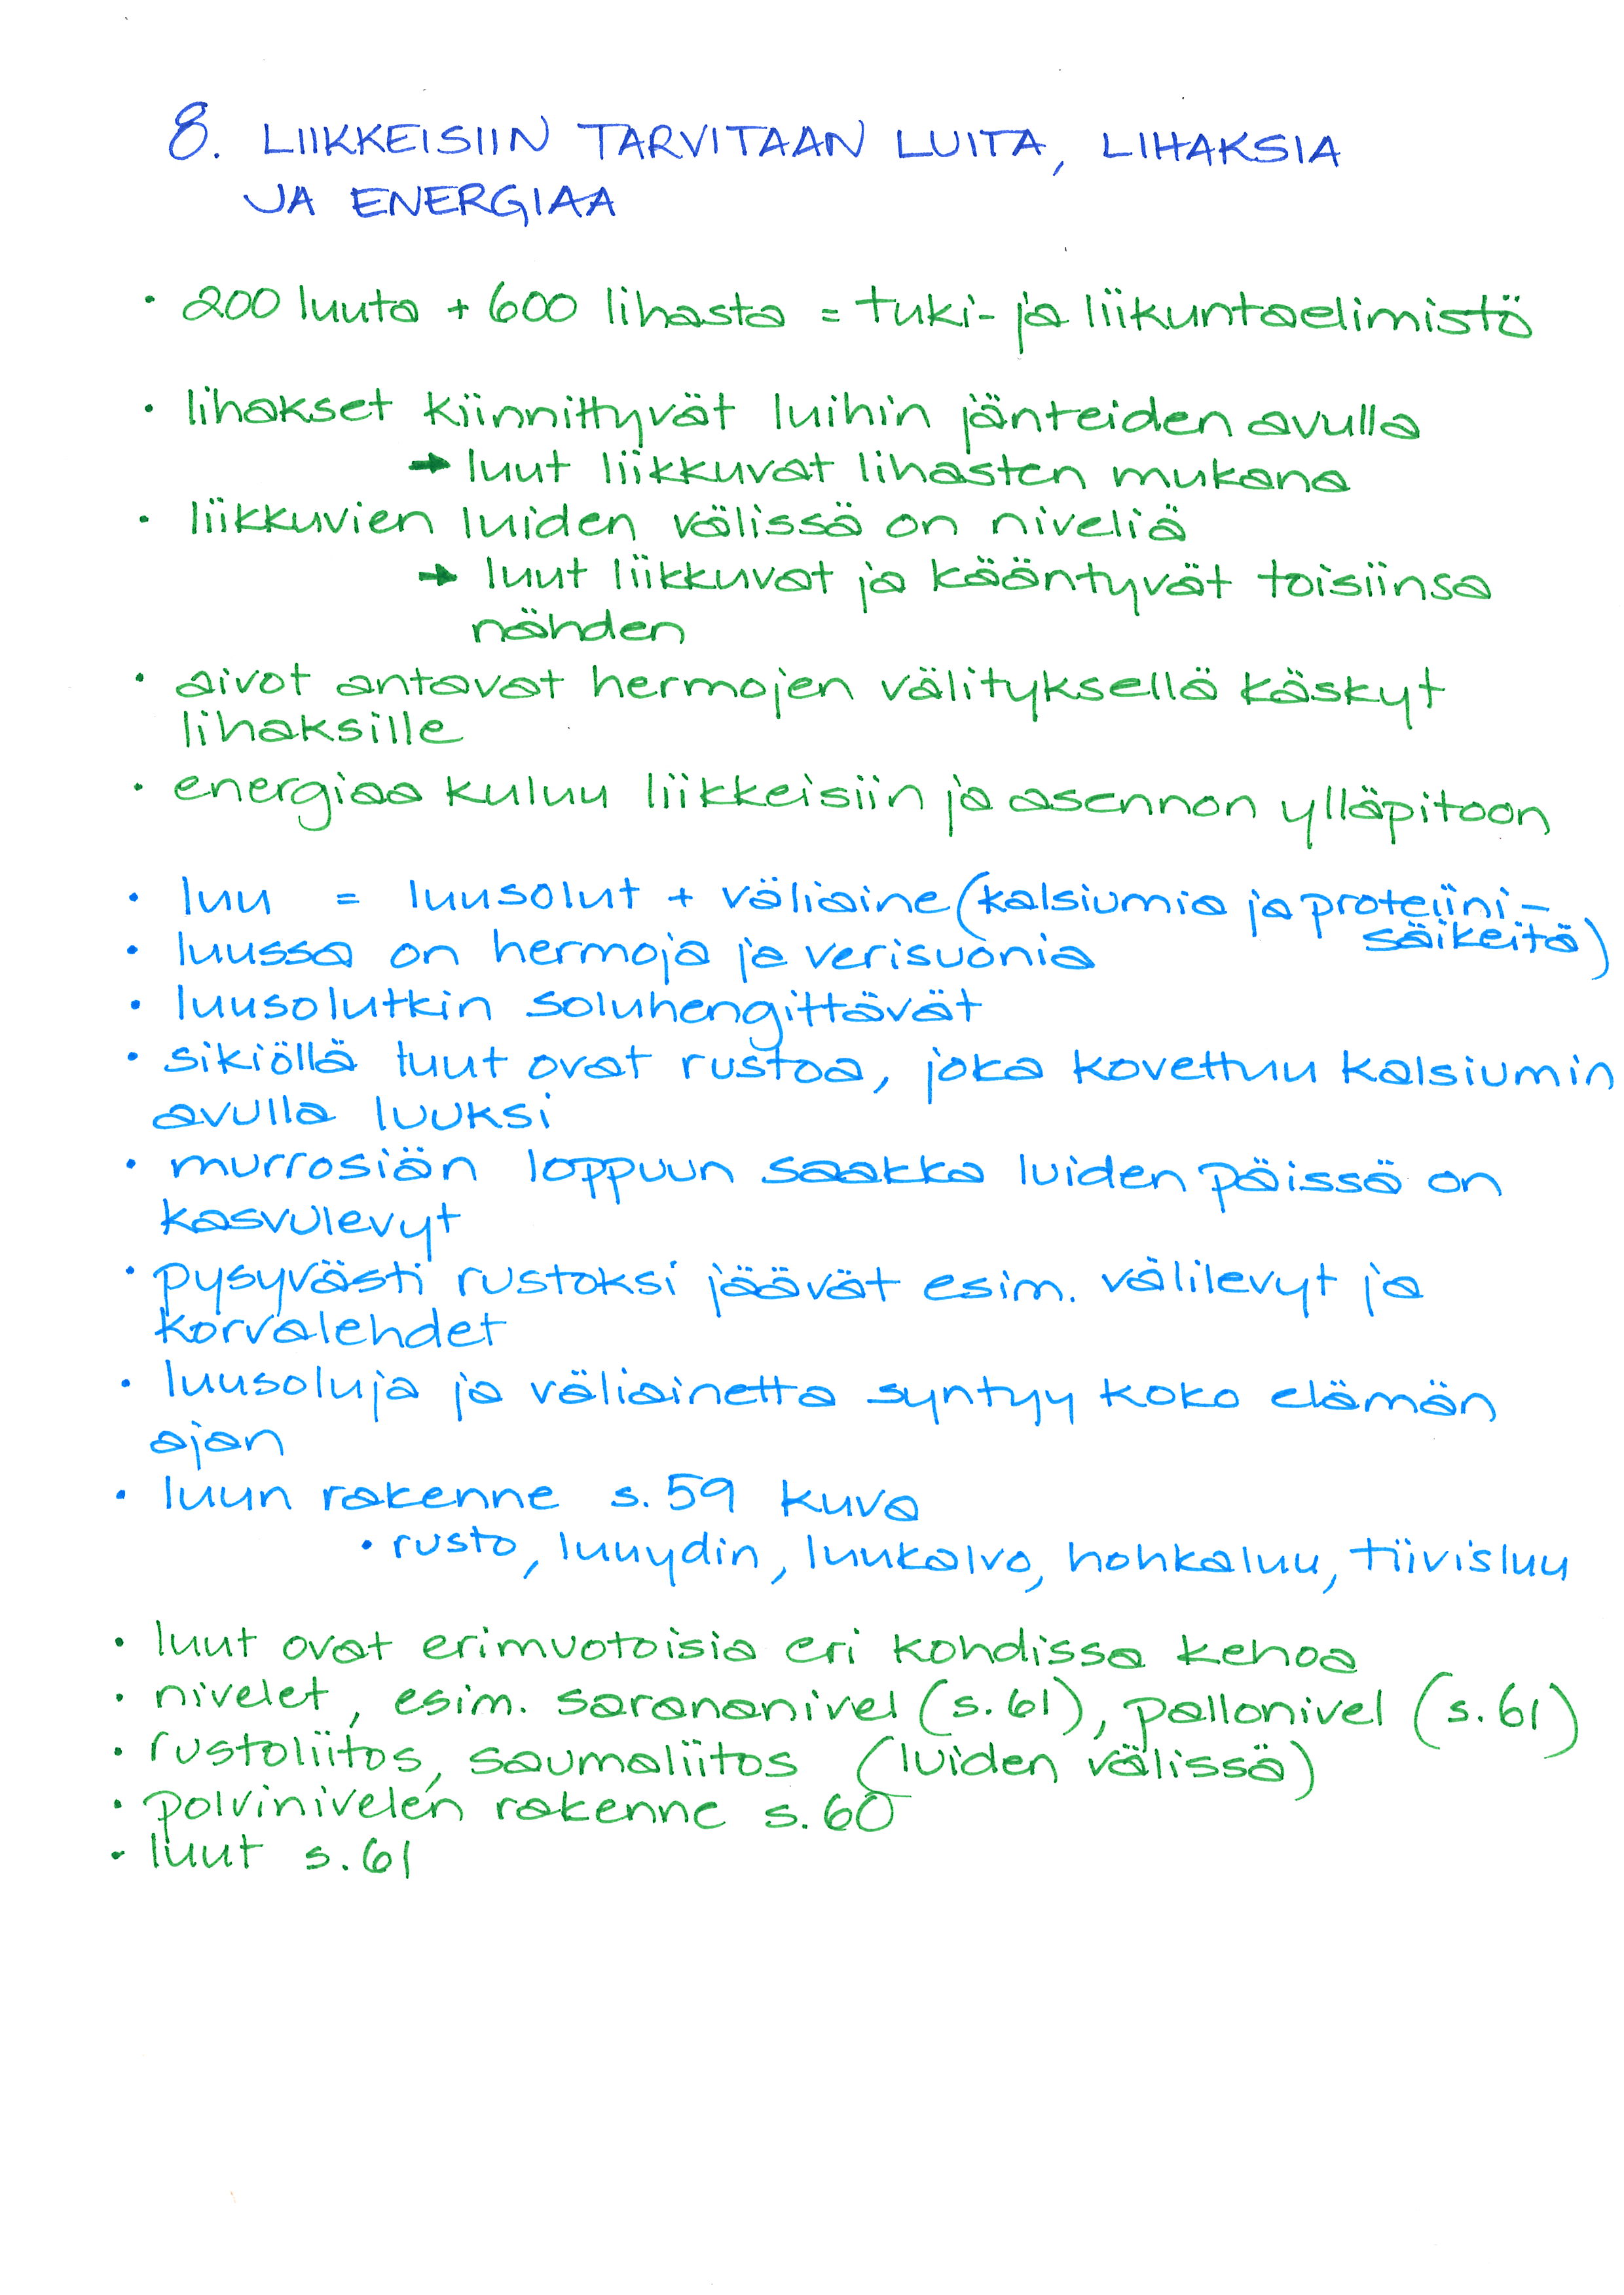 8. LIIKKEISIIN TARVITAAN LUITA, LIHAKSIA
JA ENERGIAA
• 200 luuta + 600 lihasta = tuki- ja liikuntaelimistö
• lihakset kiinnittyvät luihin jänteiden avulla
→ luut liikkuvat lihasten mukana
• liikkuvien luiden välissä on niveliä
→ luut liikkuvat ja kääntyvät toisiinsa
nähden
• aivot antavat hermojen välityksellä käskyt
lihaksille
• energiaa kuluu liikkeisiin ja asennon ylläpitoon
• luu = luusolut + väliaine (kalsiumia ja proteiini-
säikeitä)
• luussa on hermoja ja verisuonia
• luusolutkin soluhengittävät
• sikiöllä luut ovat rustoa, joka kovettuu kalsiumin
avulla luuksi
• murrosiän loppuun saakka luiden päissä on
kasvulevyt
• pysyvästi rustoksi jäävät esim. välilevyt ja
korvalehdet
• luusoluja ja väliainetta syntyy koko elämän
ajan
• luun rakenne s. 59 kuva
• rusto, luuydin, luukalvo, hohkaluu, tiivisluu
• luut ovat erimuotoisia eri kohdissa kehoa
• nivelet, esim. sarananivel (s. 61), pallonivel (s. 61)
• rustoliitos, saumaliitos (luiden välissä)
• polvinivelen rakenne s. 60
• luut s. 61